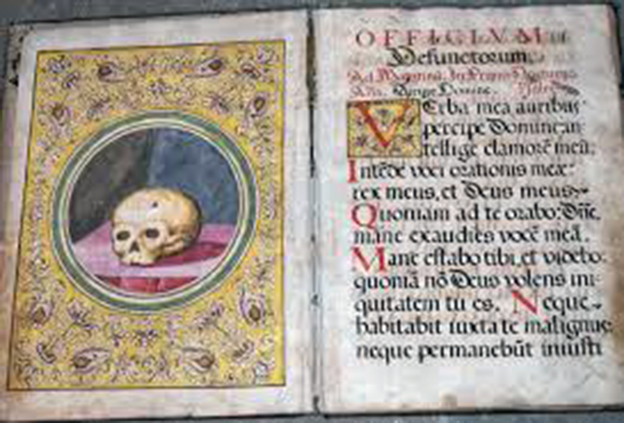 OFFICIVM
Defunctorum.
Ad Matutinū. In Primo Nocturno.
Aña. Dirige Domine.
Verba mea auribus
percipe Domine, in-
tellige clamorē meū.
Intēde voci orationis meæ:
rex meus, et Deus meus.
Quoniam ad te orabo: Dñe,
mane exaudies vocē meā.
Mane estabo tibi, et videbo:
quoniā nō Deus volens ini-
quitatem tu es. Neque
habitabit iuxta te malignus:
neque permanebūt iniusti